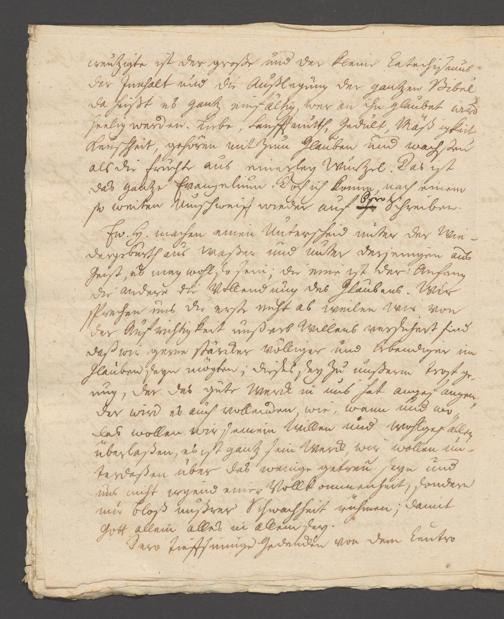 creutzigte ist der große und der kleine Catechismus
der Innhalt und die Außlegung der gantzen Bibel
da heißt es gantz einfältig, wer an ihn glaubet wird
seelig werden. Liebe, Sanfftmuth, Gedult, Mäßigkeit
Keuschheit, gehören mit zum Glauben und wachsen
als die Früchte aus einerley Wurtzel. Das ist
das gantze Evangelium. Doch ich komme nach einem
so weiten Umschweiff wieder auf Schreiben.
Ew. H. machen einen Unterscheid unter der Wie-
dergeburth aus Waßer und unter derjenigen aus
Geist, es mag wohl seyn; die eine ist der Anfang
die andere die Vollendung des Glaubens. Wir
sprechen uns die erste nicht ab weilen wir von
der Auffrichtigkeit unßers Willens versichert sind
daß wir gerne stärcker völliger und lebendiger im
Glauben seyn mögten; dießes sey zu unserm trost ge-
nug, der das gute Werck in uns hat angefangen,
der wird es auch vollenden, wie, wann und wo,
das wollen wir seinem Willen und wohlgefallen
überlaßen, es ist gantz sein Werck, wir wollen un-
terdeßen über das wenige getreu seyn und
uns nicht irgend einer Vollkommenheit, sondern
nur bloß unßrer Schwachheit rühmen; damit
Gott allein alles in allem sey.
Dero tieffsinnige Gedancken von dem Centro